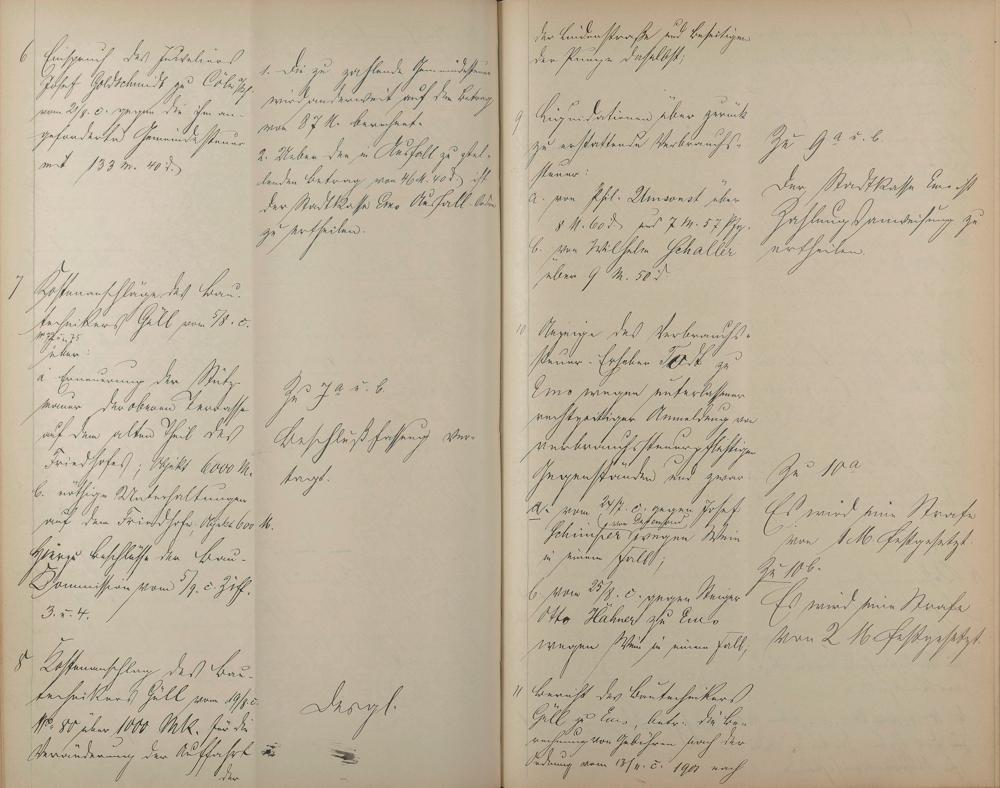 6 Einspruch des Juweliers
Josef Goldschmidt zu Cöln
vom 21/8. c. gegen die ihm an-
geforderte Gemeindesteuer
mit 133 M. 40 d.
1. Die zu zahlende Gemeindesteuer
wird anderweit auf den Betrag
von 87 M. berechnet.
2. Ueber den in Ausfall zu stel-
lenden Betrag von 46 M. 40 d. ist
der Stadtkasse Ems Ausfall-Order
zu ertheilen.
7 Kostenanschläge des Bau-
technikers Güll vom 5/8. c.
über:
a Erneuerung der Stütz-
mauer der oberen Terrasse
auf dem alten Theil des
Friedhofes; Objekt 6000 M.
b. nöthige Unterhaltungen
auf dem Friedhofe, Objekt 600 M.
Hierzu Beschlüsse der Bau-
Commission vom 5/9. c. Ziff.
3. u. 4.
Zu 7 a u. b.
Beschlußfassung ver-
tagt.
8 Kostenanschlag des Bau-
technikers Güll vom 19/8 c.
No. 80 über 1000 Mk. für die
Veränderung der Auffahrt
der
Desgl.
der Lindenstraße und Beseitigen
der Pumpe daselbst;
9 Liquidationen über zurück
zu erstattende Verbrauchs-
steuer:
a. von Phl. Umsonst über
8 M. 60 d. und 7 M. 57 Pfg.
b. von Wilhelm Schaller
über 9 M. 50 d.
Zu 9 a u. b.
Der Stadtkasse Ems ist
Zahlungsanweisung zu
ertheilen.
10 Anzeige des Verbrauchs-
steuer-Erhebers zu
Ems wegen unterlassener
rechtzeitiger Anmeldung von
verbrauchssteuerpflichtigen
Gegenständen und zwar
a. vom 24/7. c. gegen Josef
von
wegen Wein
in einem Fall;
b. vom 25/8. c. gegen Steiger
Otto Hähner zu Ems
wegen Wein in einem Fall;
Zu 10 a
Es wird eine Strafe
von 1 M festgesetzt.
Zu 10 b.
Es wird eine Strafe
von 2 M festgesetzt.
11 Bericht des Bautechnikers
Güll zu Ems, betr. die Be-
rechnung von Gebühren nach der
Ordnung vom 13/4. c. 1901 nach